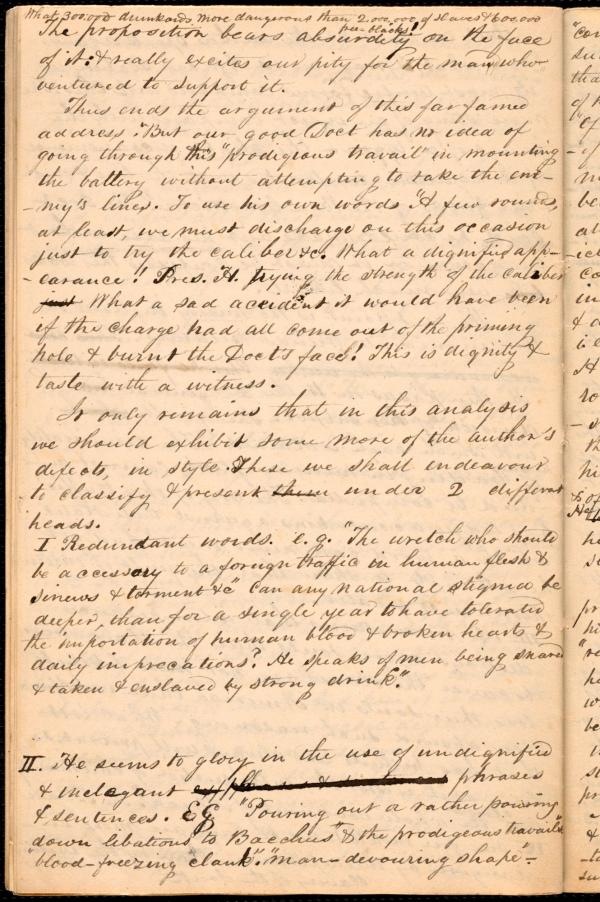 What 300,000 drunkards, more dangerous than 2,000,000 of slaves & 600,000
free-blacks!
The proposition bears absurdity on the face
of it: & really excites our pity for the man who
ventured to support it.
Thus ends the argument of this far famed
address. But our good Doct has no idea of
going through this "prodigious travail" in mounting
the battery without attempting to rake the ene-
-my's lines. To use his own words "A few rounds,
at least, we must discharge on this occasion
just to try the caliber &c. What a dignified app-
-earance! Pres. H. trying the strength of the caliber
just What a sad accident it would have been
if the charge had all come out of the priming
hole & burnt the Doct's face! This is dignity &
taste with a witness.
It only remains that in this analysis
we should exhibit some more of the author's
defects, in style. These we shall endeavour
to classify & present them under 2 different
heads.
I Redundant words. e.g. "The wretch who should
be accessory to a foreign traffic in human flesh &
sinews & torment &c" Can any national stigma be
deeper, than for a single year to have tolerated
the importation of human blood & broken hearts &
daily imprecations? He speaks of men being snared
& taken & enslaved by strong drink".
II. He seems to glory in the use of undignified
& inelegant phrases
& sentences. EG "Pouring out a rather
down libations to Bacchus" & the prodigeous travail"
"blood-freezing clank". "man-devouring shape"-